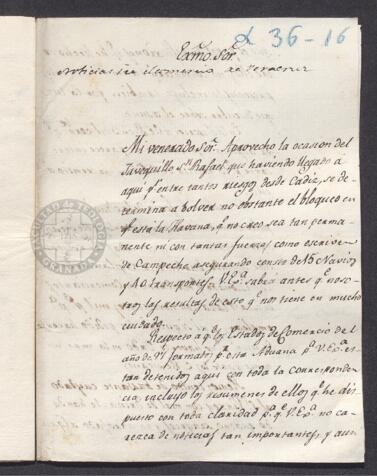 α 36-16
Exmo. Sor.
Noticias del comercio de Veracruz
Mi venerado Sor. Aprovecho la ocasion del
Javeguillo Sn. Rafael que haviendo llegado a
aqui pr. entre tantos riesgos desde Cadiz, se de-
termina a bolver no obstante el bloqueo en
qe. esta la Havana, qe. no creo sea tan perma-
nente ni con tantas fuerzas como escriven
de Campeche asegurando consta de 15 Navios
y 40 transportes. V.Exa. sabrá antes qe. noso-
tros las resultas de esto qe. nos tiene en mucho
cuidado.
Respecto a qe. los Estados de Comercio del
año de 91 formados pr. esta Aduana pa. V.Exa. es-
tan detenidos aqui con toda la corresponden-
cia, incluyo los resumenes de ellos qe. he dis-
puesto con toda claridad pa. qe. V.Exa. no ca-
rezca de noticias tan importantes, y aun
FACULTAD DE TEOLOGIA
GRANADA